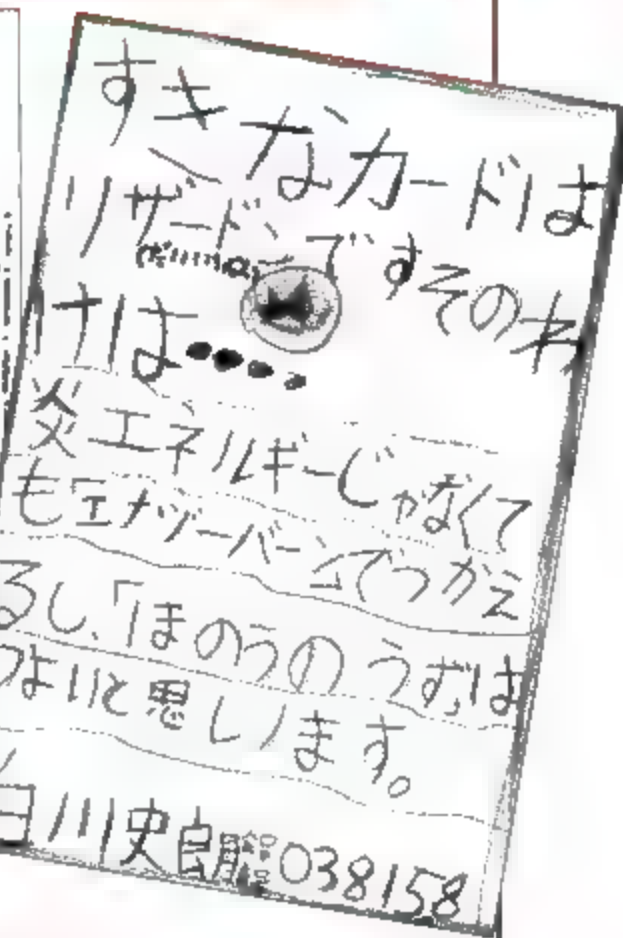 すきなカードは
リザードンですそのわ
けは
炎エネルギーじゃなくて
もエナジーバーンでつかえ
るし、「ほのうのうず」は
つよいと思います。
白川史郎 038158